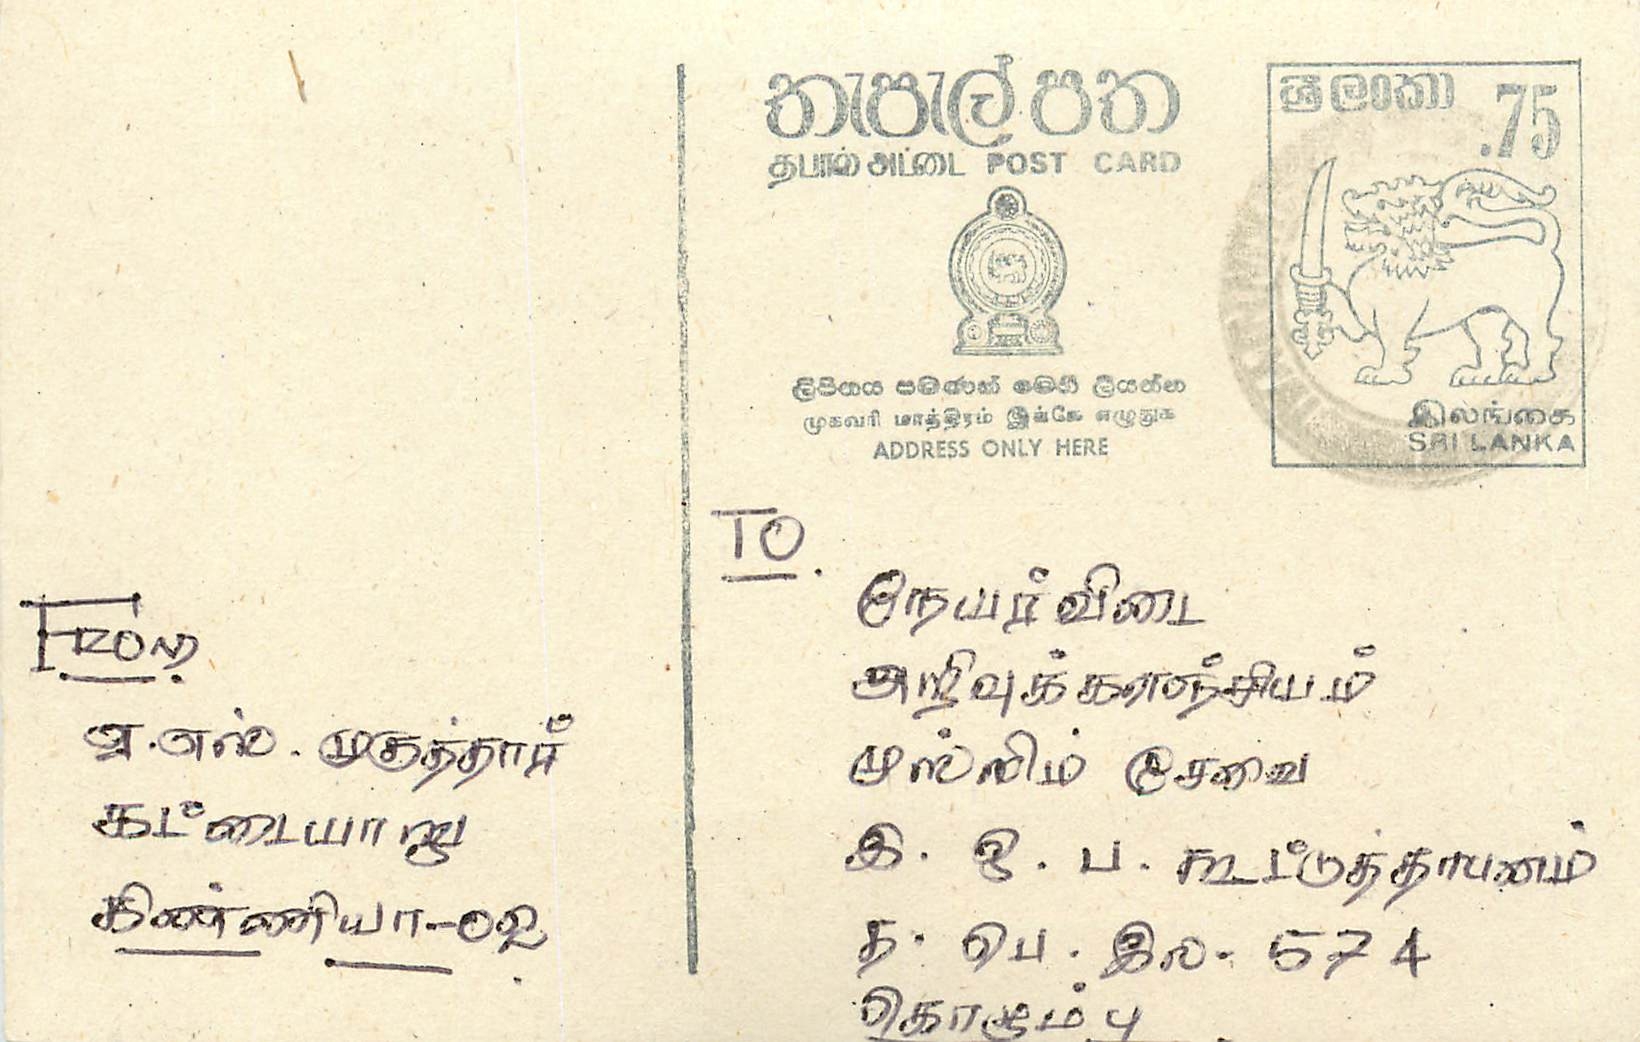 තැපැල් පත
தபால் அட்டை POST CARD
ශ්‍රී ලංකා .75
ලිපිනය පමණක් මෙහි ලියන්න
முகவரி மாத்திரம் இங்கே எழுதுக
ADDRESS ONLY HERE
இலங்கை
SRI LANKA
TO.
நேயர் விடை
அறிவுக்களஞ்சியம்
முஸ்லிம் சேவை
இ. ஒ. ப. கூட்டுத்தாபனம்
த. பெ. இல. 574
கொழும்பு
From
ஏ. எல். முகுத்தார்
கட்டையாறு
கிண்ணியா-02